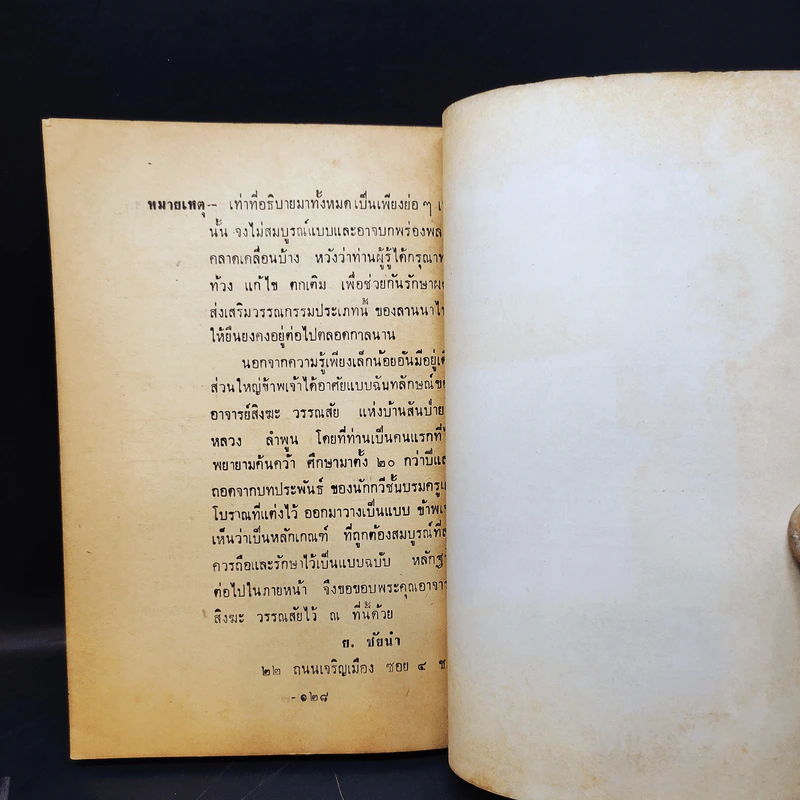 หมายเหตุ-- เท่าที่อธิบายมาทั้งหมด เป็นเพียงย่อ ๆ เ
นั้น จงไม่สมบูรณ์แบบและอาจบกพร่องพล
คลาดเคลื่อนบ้าง หวังว่าท่านผู้รู้ได้กรุณาท
ท้วง แก้ไข ตกเติม เพื่อช่วยกันรักษาผด
ส่งเสริมวรรณกรรมประเภทนี้ ของลานนาไ
ให้ยืนยงคงอยู่ต่อไปตลอดกาลนาน
นอกจากความรู้เพียงเล็กน้อยอันมีอยู่เดิ
ส่วนใหญ่ข้าพเจ้าได้อาศัยแบบฉันทลักษณ์ขอ
อาจารย์สิงฆะ วรรณสัย แห่งบ้านสันป่าย
หลวง ลำพูน โดยที่ท่านเป็นคนแรกที่ไ
พยายามค้นคว้า ศึกษามาตั้ง ๒๐ กว่าปีแล
ถอดจากบทประพันธ์ ของนักกวีชั้นบรมครูแ
โบราณที่แต่งไว้ ออกมาวางเป็นแบบ ข้าพเจ
เห็นว่าเป็นหลักเกณฑ์ ที่ถูกต้องสมบูรณ์ที่ส
ควรถือและรักษาไว้เป็นแบบฉบับ หลักฐา
ต่อไปในภายหน้า จึงขอขอบพระคุณอาจาร
สิงฆะ วรรณสัยไว้ ณ ที่นี้ด้วย
ย. ชัยนำ
๒๒ ถนนเจริญเมือง ซอย ๔ ช
-๑๒๘